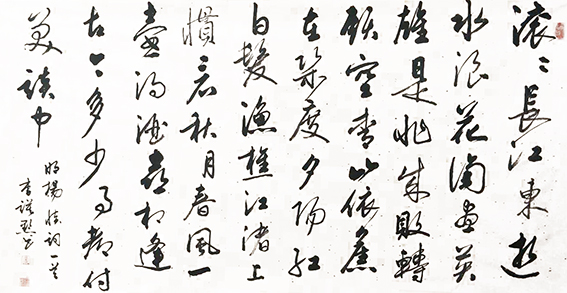 滚〻長江東逝
水浪花淘盡英
雄是非成敗轉
頭空青山依舊
在幾度夕阳红
白髮漁樵江渚上
慣看秋月春風一
壶濁酒喜相逢
古今多少事都付
笑談中
明楊慎词一首